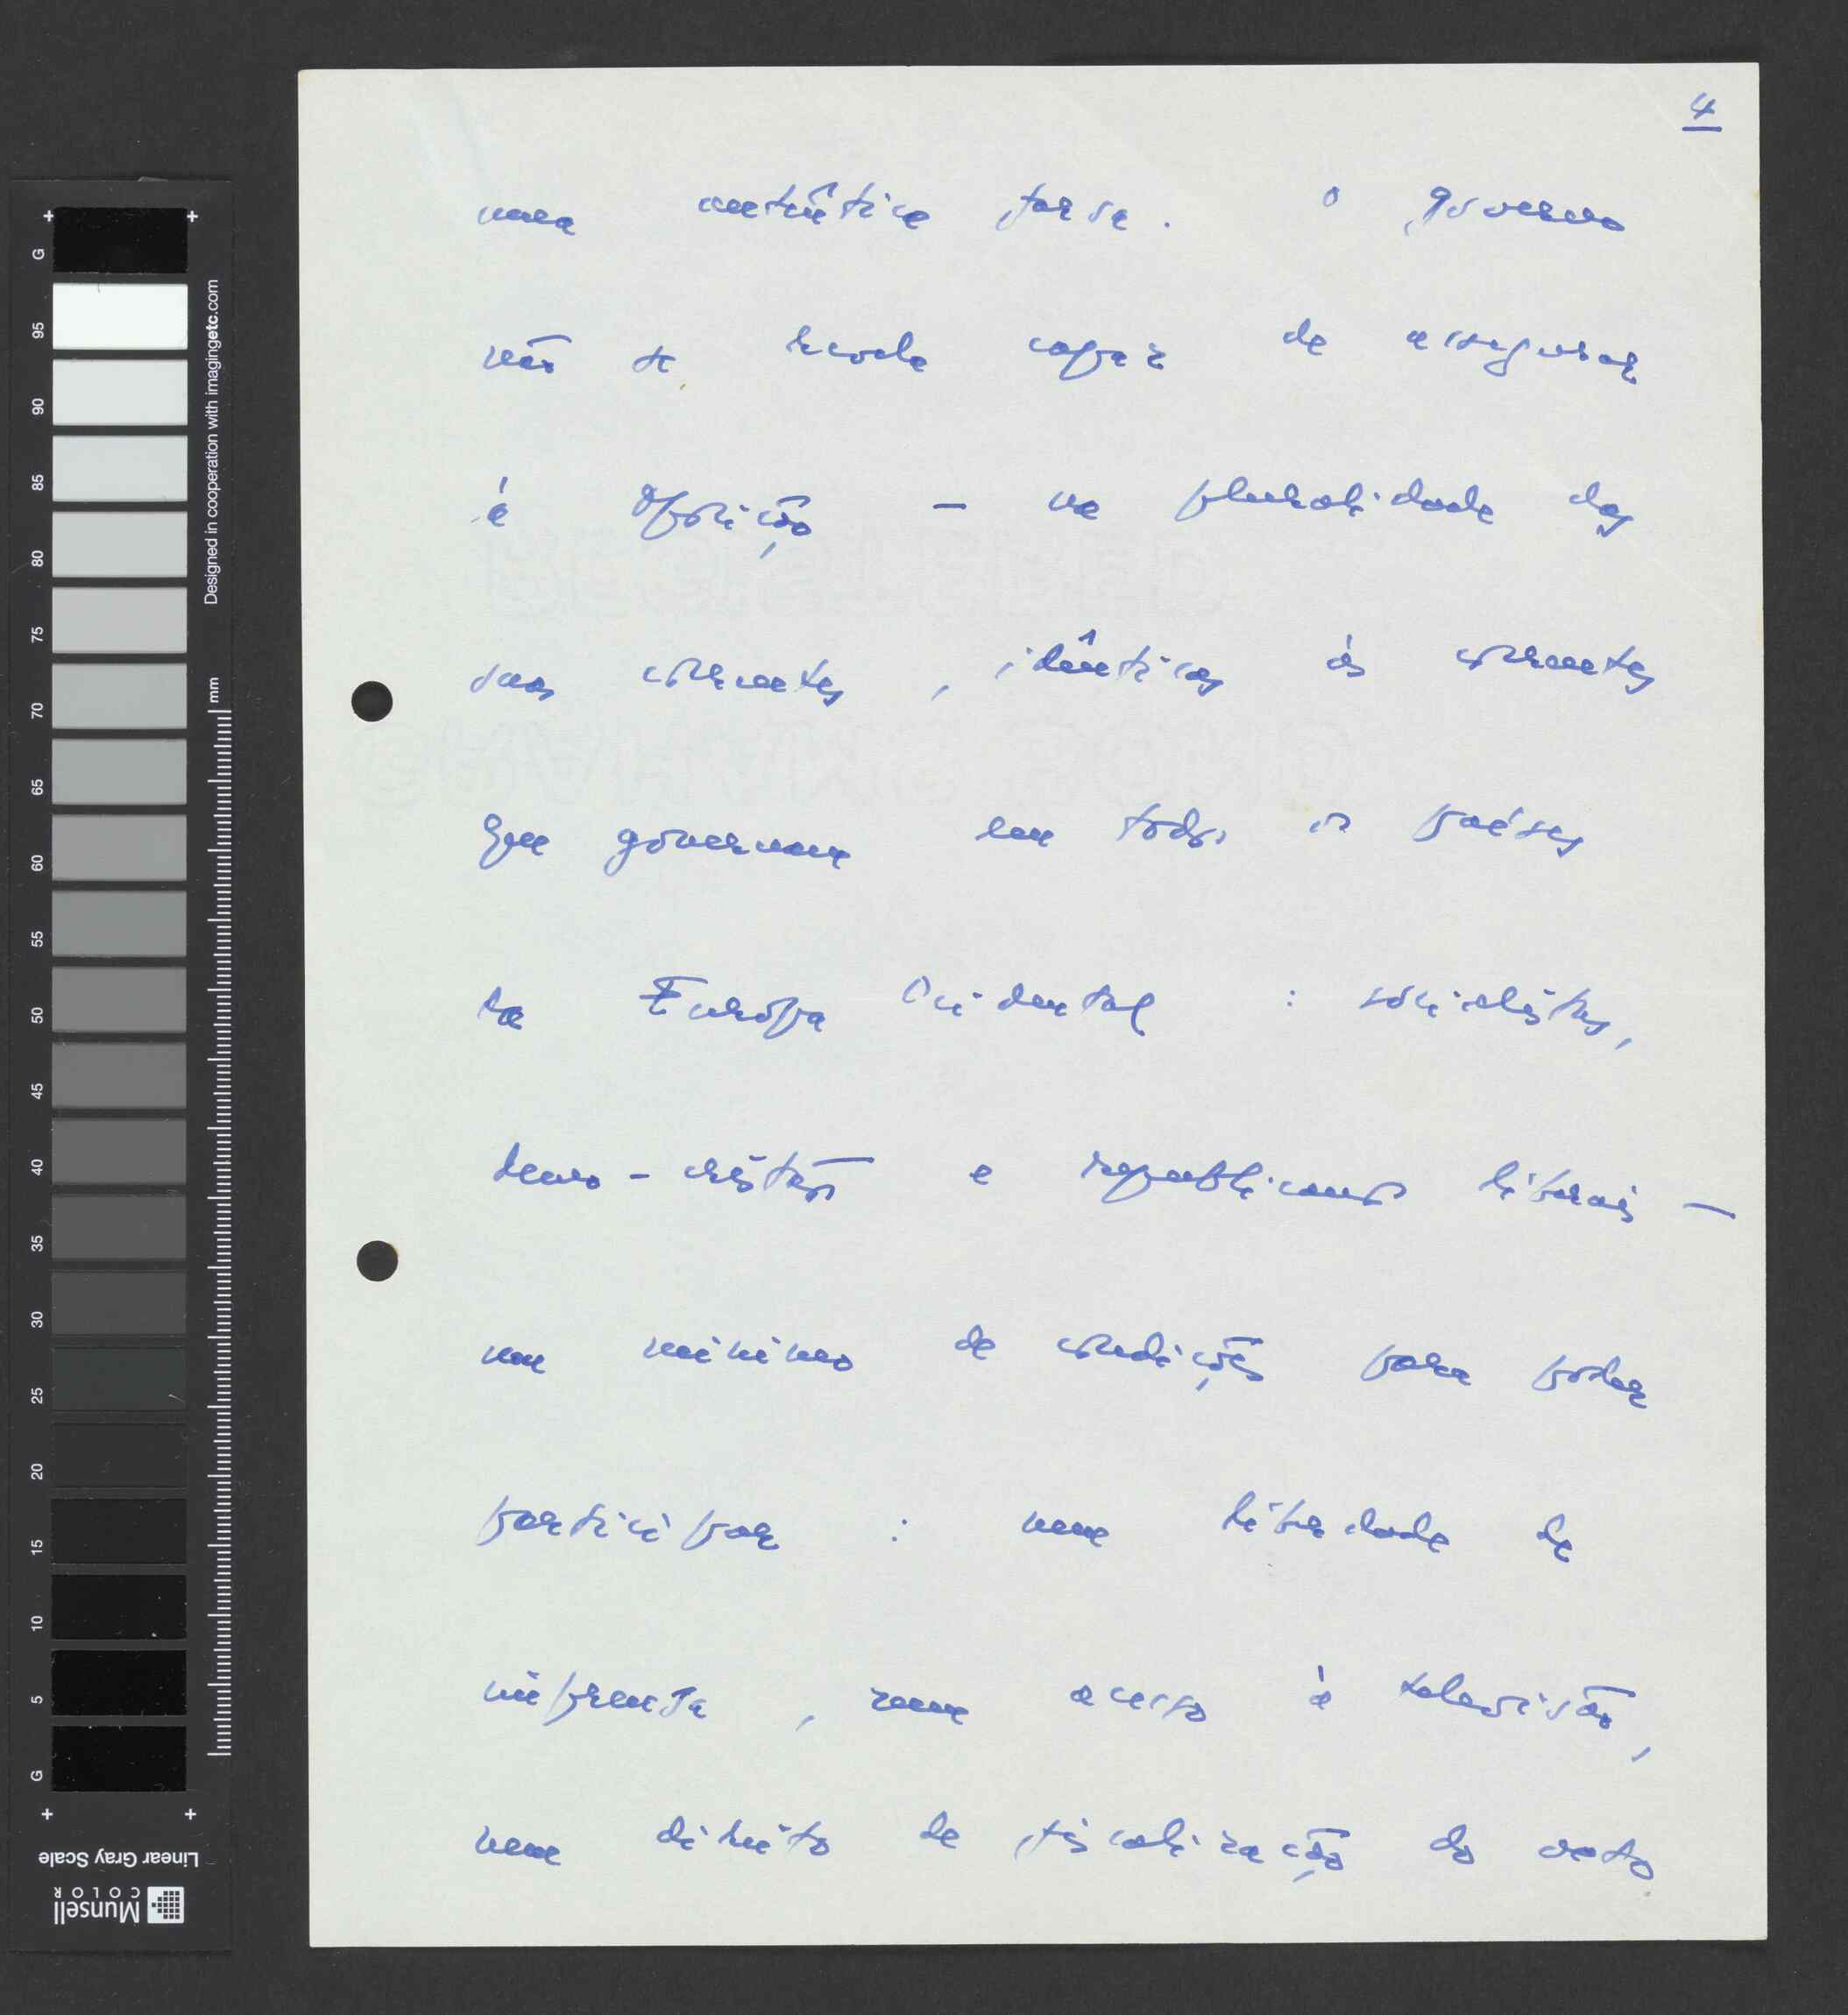 4
uma autêntica farsa. O governo
não se revela capaz de assegurar
à Oposição – na pluralidade das
suas correntes, idênticas às correntes
que governam em todos os países
da Europa Ocidental : socialistas,
demo-cristãos e republicanos liberais –
um mínimo de condições para poder
participar : nem liberdade de
imprensa, nem acesso à televisão,
nem direito de fiscalização do voto
G
95
90
85
80
75
70
65
60
55
50
45
40
35
30
25
20
15
10
5
G
Designed in cooperation with imagingetc.com
mm
Linear Gray Scale
Munsell
COLOR